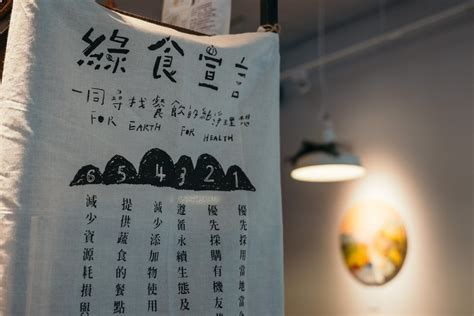 綠食宣言
一同尋找餐飲的純淨理想
FOR EARTH FOR HEALTH
6 5 4 3 2 1
優先採用當地當
優先採購有機友
遵循永續生態及
減少添加物使用
提供蔬食的餐點
減少資源耗損與